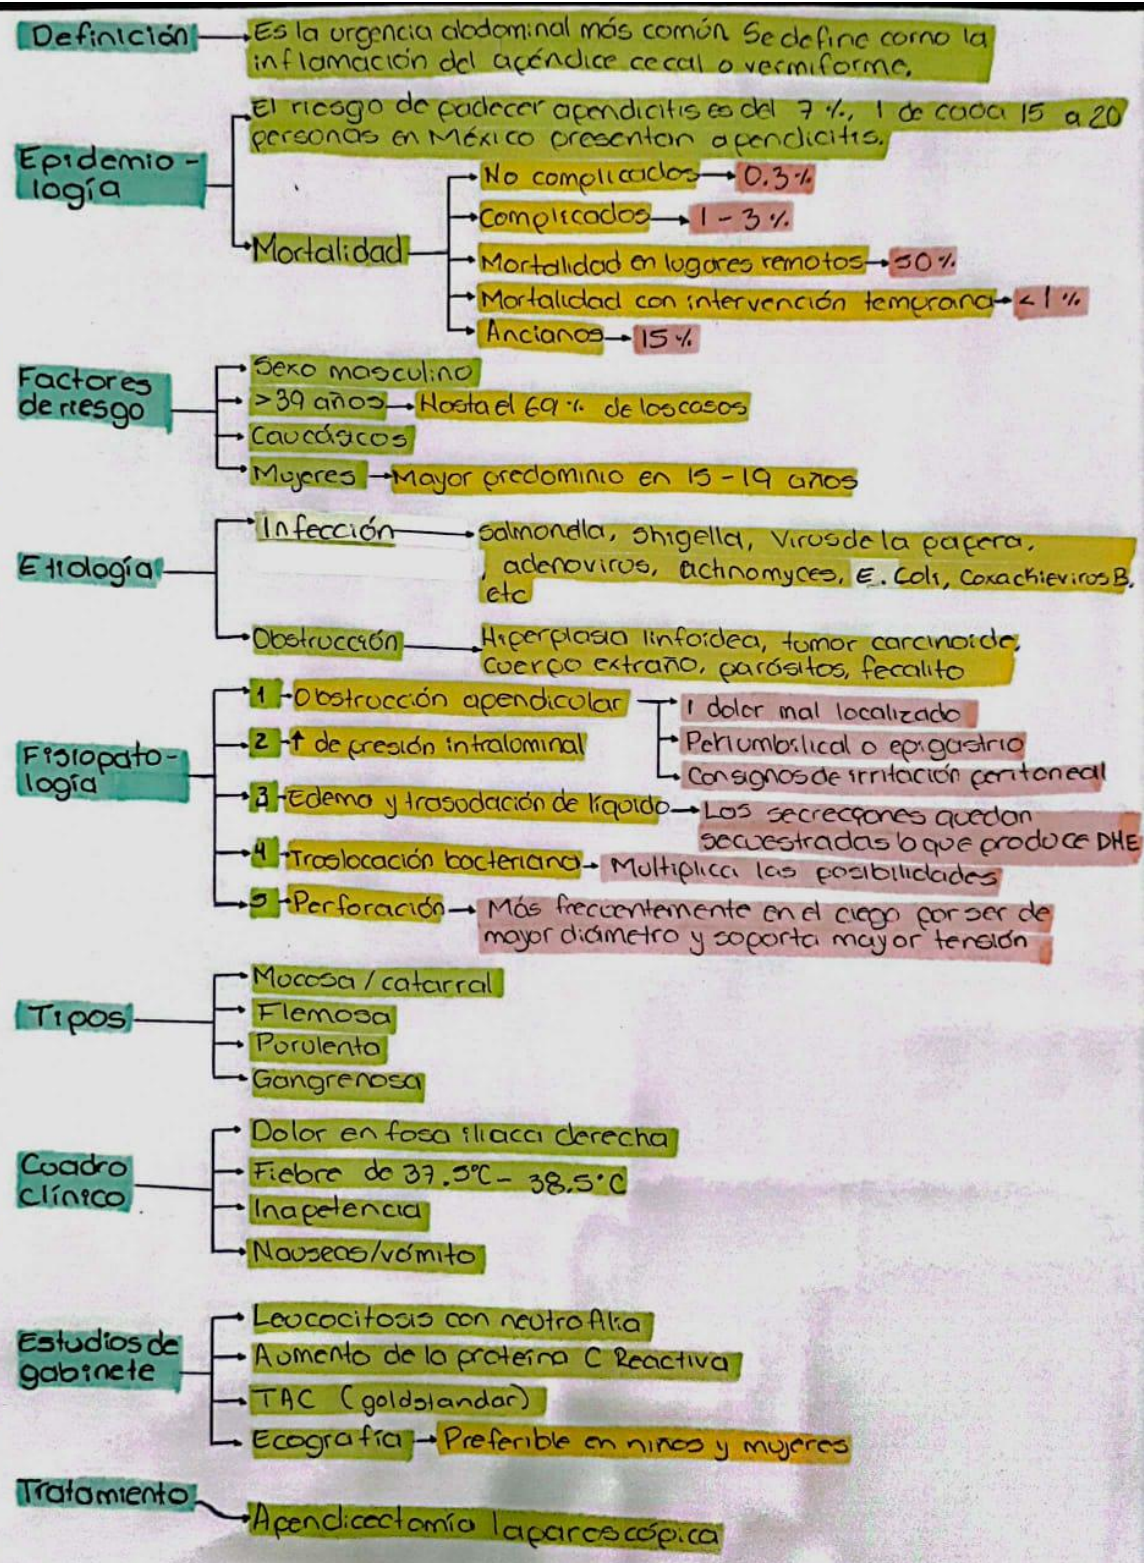 Definición
Es la urgencia abdominal más común Se define como la
inflamación del apéndice cecal o vermiforme.
Epidemio-
logía
El riesgo de padecer apendicitis es del 7%, 1 de cada 15 a 20
personas en México presentan apendicitis.
Mortalidad
No complicados
0.3%
Complicados
1-3%
Mortalidad en lugares remotos
50%
Mortalidad con intervención temprana
<1%
Ancianos
15%
Factores
de riesgo
Sexo masculino
>39 años
Hasta el 69% de los casos
Caucásicos
Mujeres
Mayor predominio en 15-19 años
Etiología
Infección
Salmonella, Shigella, Virus de la papera,
adenovirus, actinomyces, E. Coli, Coxachievirus B,
etc
Obstrucción
Hiperplasia linfoidea, tumor carcinoide,
cuerpo extraño, parásitos, fecalito
Fisiopato-
logía
1 Obstrucción apendicular
1 dolor mal localizado
Periumbilical o epigastrio
Con signos de irritación peritoneal
2 ↑ de presión intraluminal
3 Edema y trasudación de líquido
Las secreciones quedan
secuestradas lo que produce DHE
4 Traslocación bacteriana
Multiplica las posibilidades
5 Perforación
Más frecuentemente en el ciego por ser de
mayor diámetro y soporta mayor tensión
Tipos
Mucosa / catarral
Flemosa
Purulenta
Gangrenosa
Cuadro
clínico
Dolor en fosa iliaca derecha
Fiebre de 37.5°C - 38.5°C
Inapetencia
Nauseas/vómito
Estudios de
gabinete
Leucocitosis con neutrofilia
Aumento de la proteína C Reactiva
TAC (goldstandar)
Ecografía
Preferible en niños y mujeres
Tratamiento
Apendicectomía laparoscópica